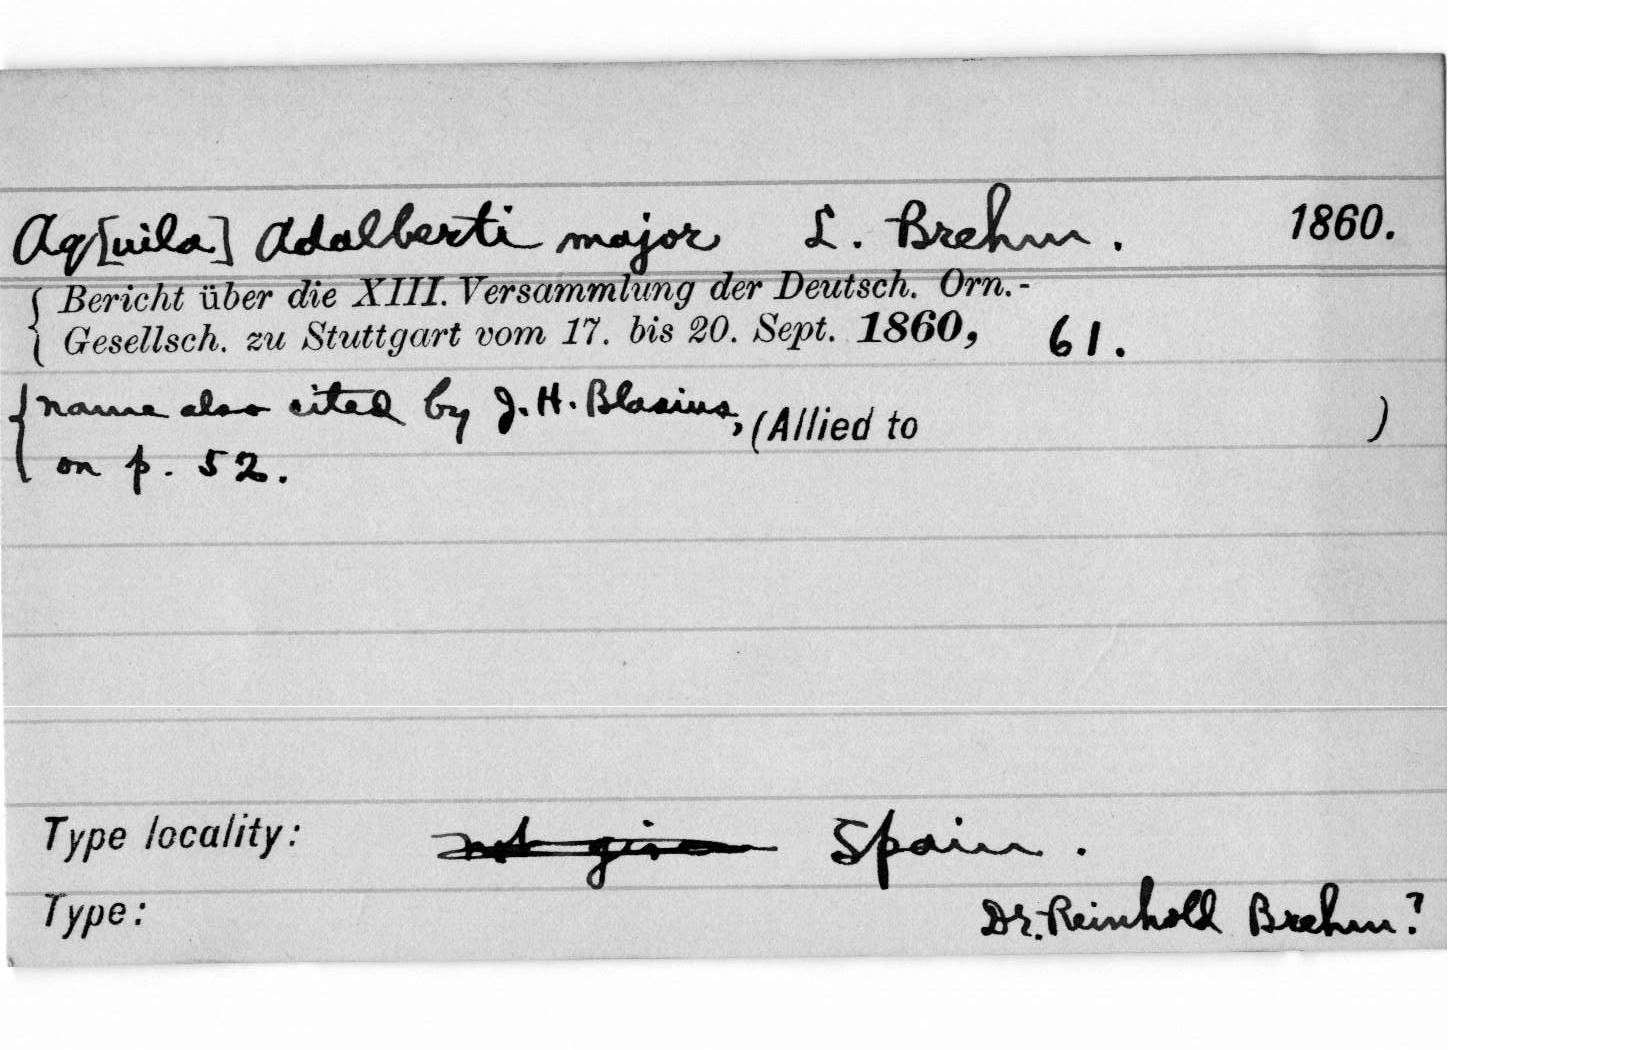 Aq[uila] Adalberti major L. Brehm. 1860.
Bericht über die XIII. Versammlung der Deutsch. Orn.-
Gesellsch. zu Stuttgart vom 17. bis 20. Sept. 1860, 61.
name also cited by J. H. Blasius, (Allied to )
on p. 52.
Type locality: not given Spain.
Type: Dr. Reinhold Brehm?